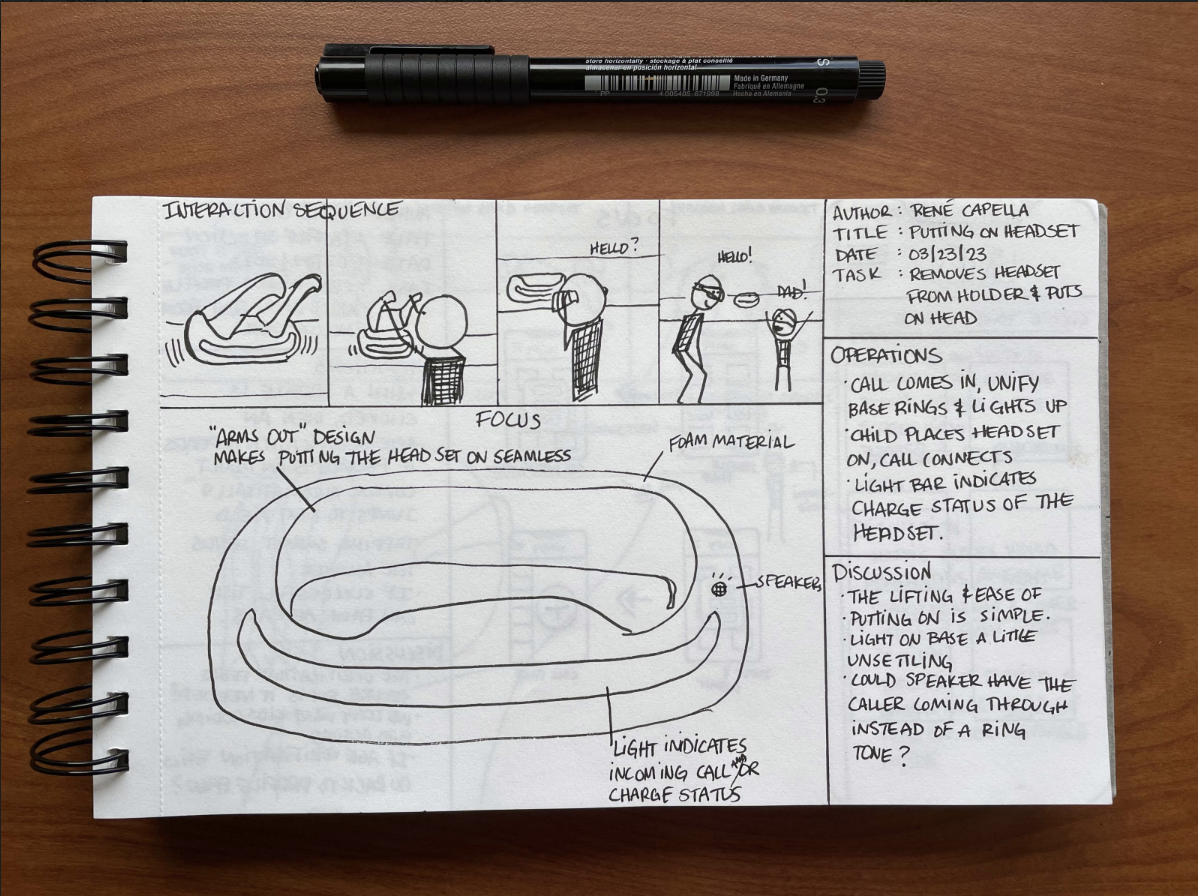 store horizontally · stockage à plat conseillé
almacenar en posición horizontal
Made in Germany
Fabriqué en Allemagne
Hecho en Alemania
PP
4 005405 671998
0.3
INTERACTION SEQUENCE
HELLO?
HELLO!
DAD!
FOCUS
"ARMS OUT" DESIGN
MAKES PUTTING THE HEAD SET ON SEAMLESS
FOAM MATERIAL
SPEAKER
LIGHT INDICATES
INCOMING CALL AND/OR
CHARGE STATUS
AUTHOR : RENÉ CAPELLA
TITLE : PUTTING ON HEADSET
DATE : 03/23/23
TASK : REMOVES HEADSET
FROM HOLDER & PUTS
ON HEAD
OPERATIONS
· CALL COMES IN, UNIFY
BASE RINGS & LIGHTS UP
· CHILD PLACES HEADSET
ON, CALL CONNECTS
· LIGHT BAR INDICATES
CHARGE STATUS OF THE
HEADSET.
DISCUSSION
· THE LIFTING & EASE OF
· PUTTING ON IS SIMPLE.
· LIGHT ON BASE A LITTLE
UNSETTLING
· COULD SPEAKER HAVE THE
CALLER COMING THROUGH
INSTEAD OF A RING
TONE?